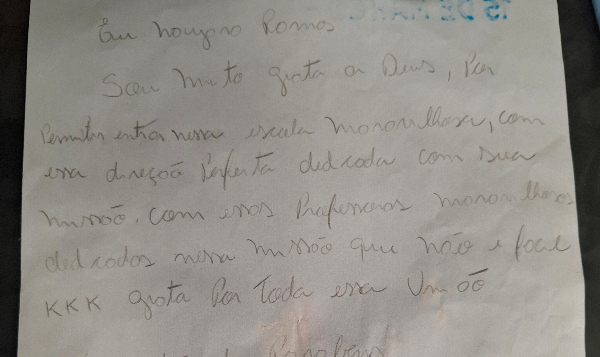 15 DE MARÇO
Eu Ramos
Sou muito grata a Deus, por
Permitir entrar nessa escola maravilhosa, com
essa direção Perfeita dedicada com sua
missão. com esses Professores maravilhosos
dedicados nessa missão que não é facil
KKK grata Por toda essa União
Parabéns